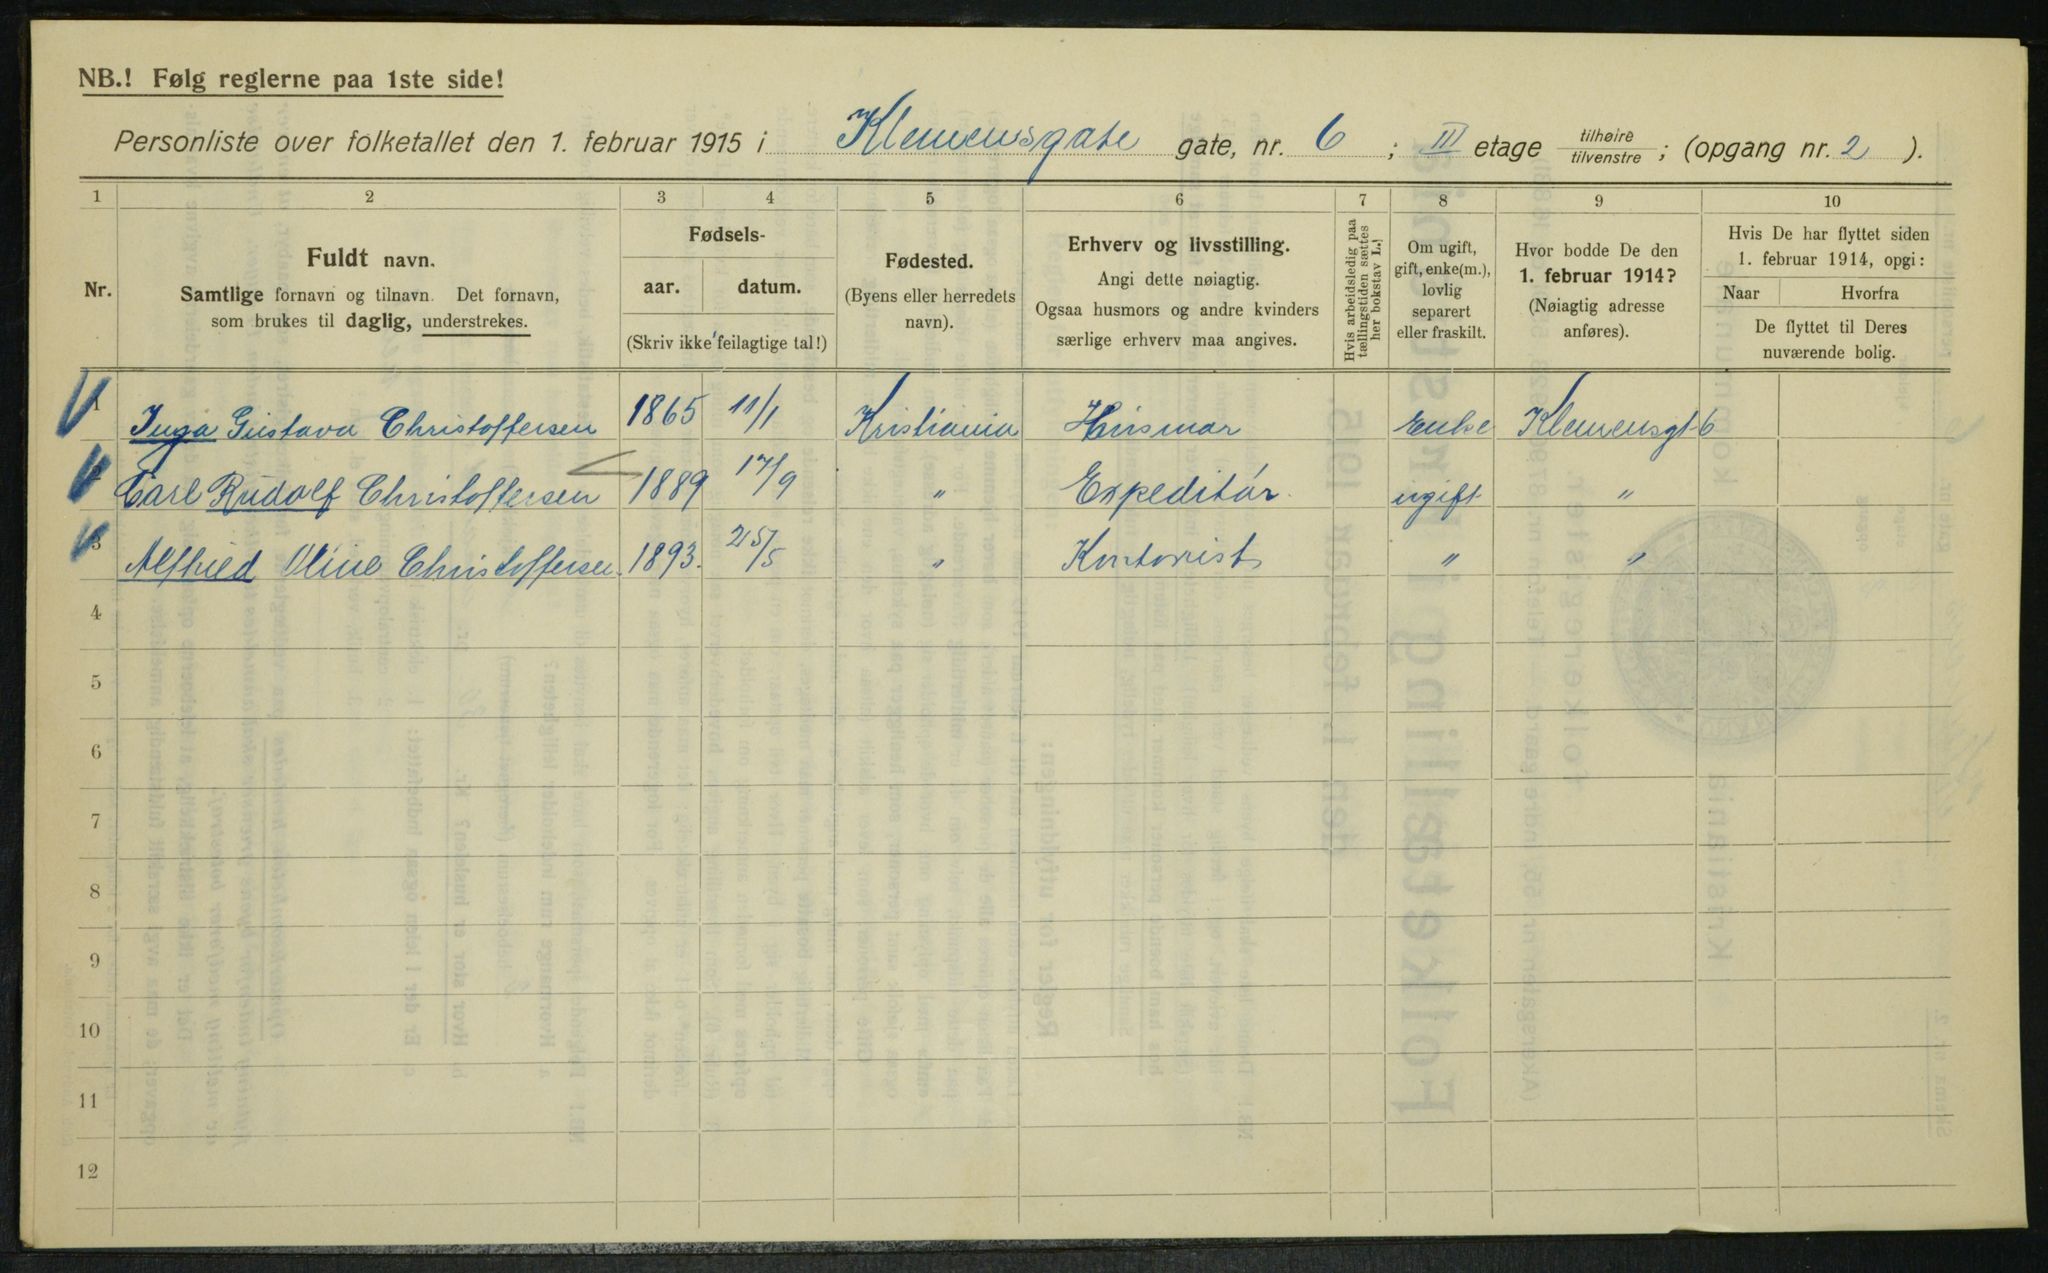 NB.! Følg reglerne paa 1ste side!
Personliste over folketallet den 1. februar 1915 i Klemensgate gate, nr. 6 ; III etage tilhøire / tilvenstre ; (opgang nr. 2 ).
1 2 3 4 5 6 7 8 9 10
Nr.
Fuldt navn.
Samtlige fornavn og tilnavn. Det fornavn,
som brukes til daglig, understrekes.
Fødsels-
aar. datum.
(Skriv ikke feilagtige tal!)
Fødested.
(Byens eller herredets
navn).
Erhverv og livsstilling.
Angi dette nøiagtig.
Ogsaa husmors og andre kvinders
særlige erhverv maa angives.
Hvis arbeidsledig paa
tællingstiden sættes
her bokstav L.!
Om ugift,
gift, enke(m.),
lovlig
separert
eller fraskilt.
Hvor bodde De den
1. februar 1914?
(Nøiagtig adresse
anføres).
Hvis De har flyttet siden
1. februar 1914, opgi:
Naar Hvorfra
De flyttet til Deres
nuværende bolig.
1 Inga Gustava Christoffersen 1865 11/1 Kristiania Husmor Enke Klemensgt 6
2 Carl Rudolf Christoffersen 1889 17/9 " Expeditør. ugift "
3 Alfhild Oline Christoffersen 1893. 25/5 " Kontorist " "
4
5
6
7
8
9
10
11
12